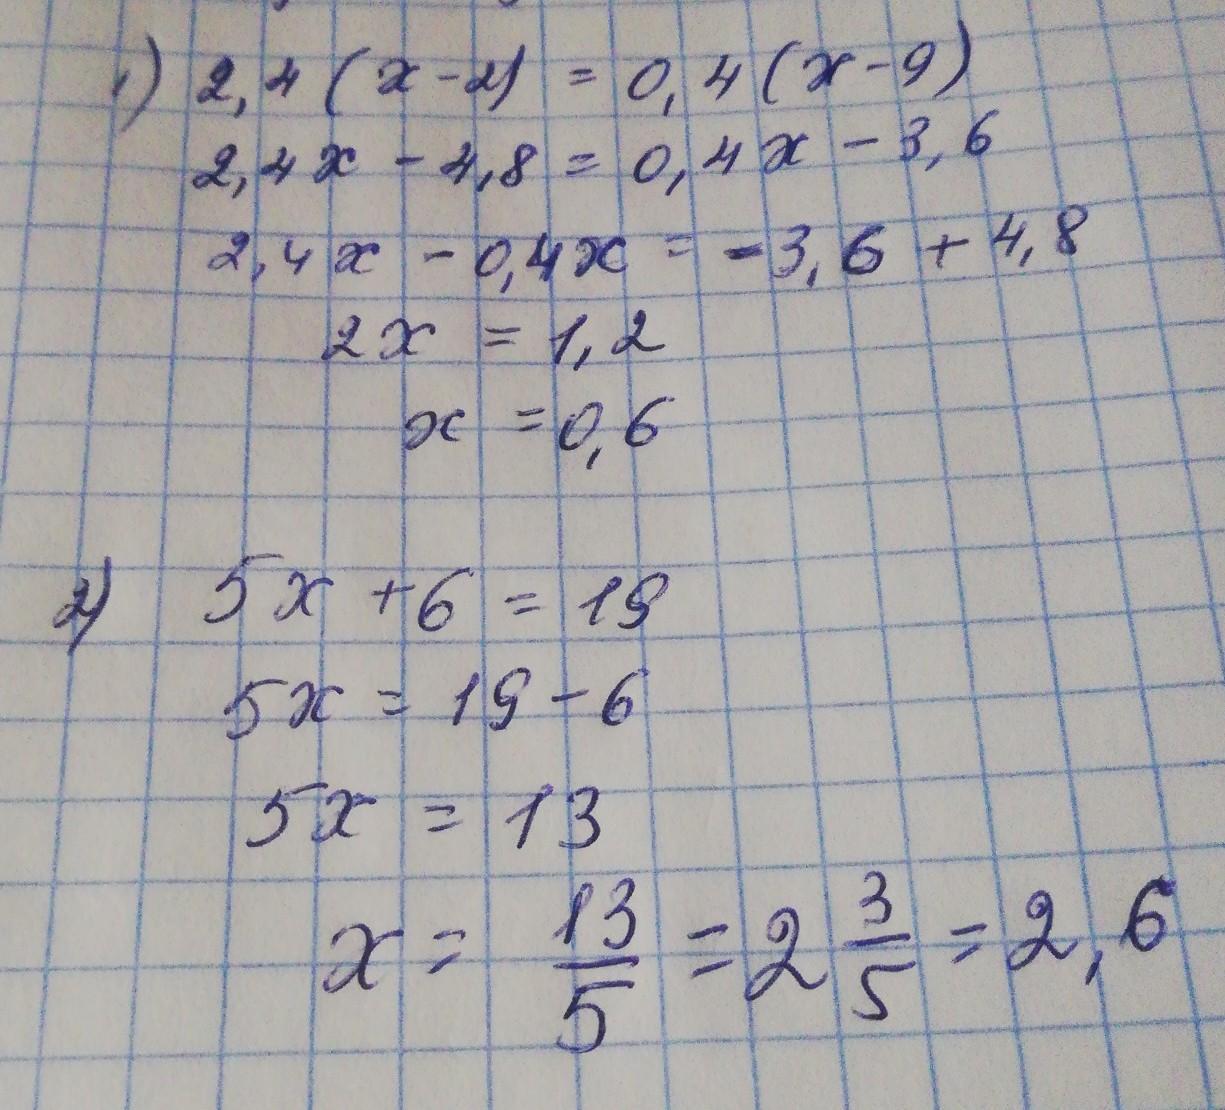 1) 2,4(x-2) = 0,4(x-9)
2,4x - 4,8 = 0,4x - 3,6
2,4x - 0,4x = -3,6 + 4,8
2x = 1,2
x = 0,6
2) 5x + 6 = 19
5x = 19 - 6
5x = 13
x = 13/5 = 2 3/5 = 2,6